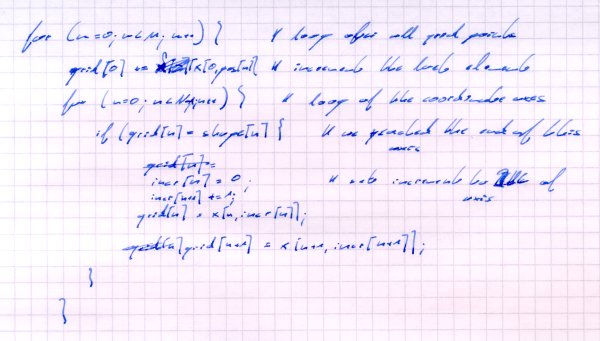 for (n=0; n<M; n++) { # loop over all grid points
grid[0] += x[0, pos[n] # increment the last element
for (n=0; n<N; n++) { # loop of the coordinate axes
if (grid[n] = shape[n] { # we reached the end of this
axis
grid[n] =
incr[n] = 0; # sets increment to of
axis
incr[n+1] += 1;
grid[n] = x[n, incr[n]];
grid[n+1] = x[n+1, incr[n+1]];
}
}